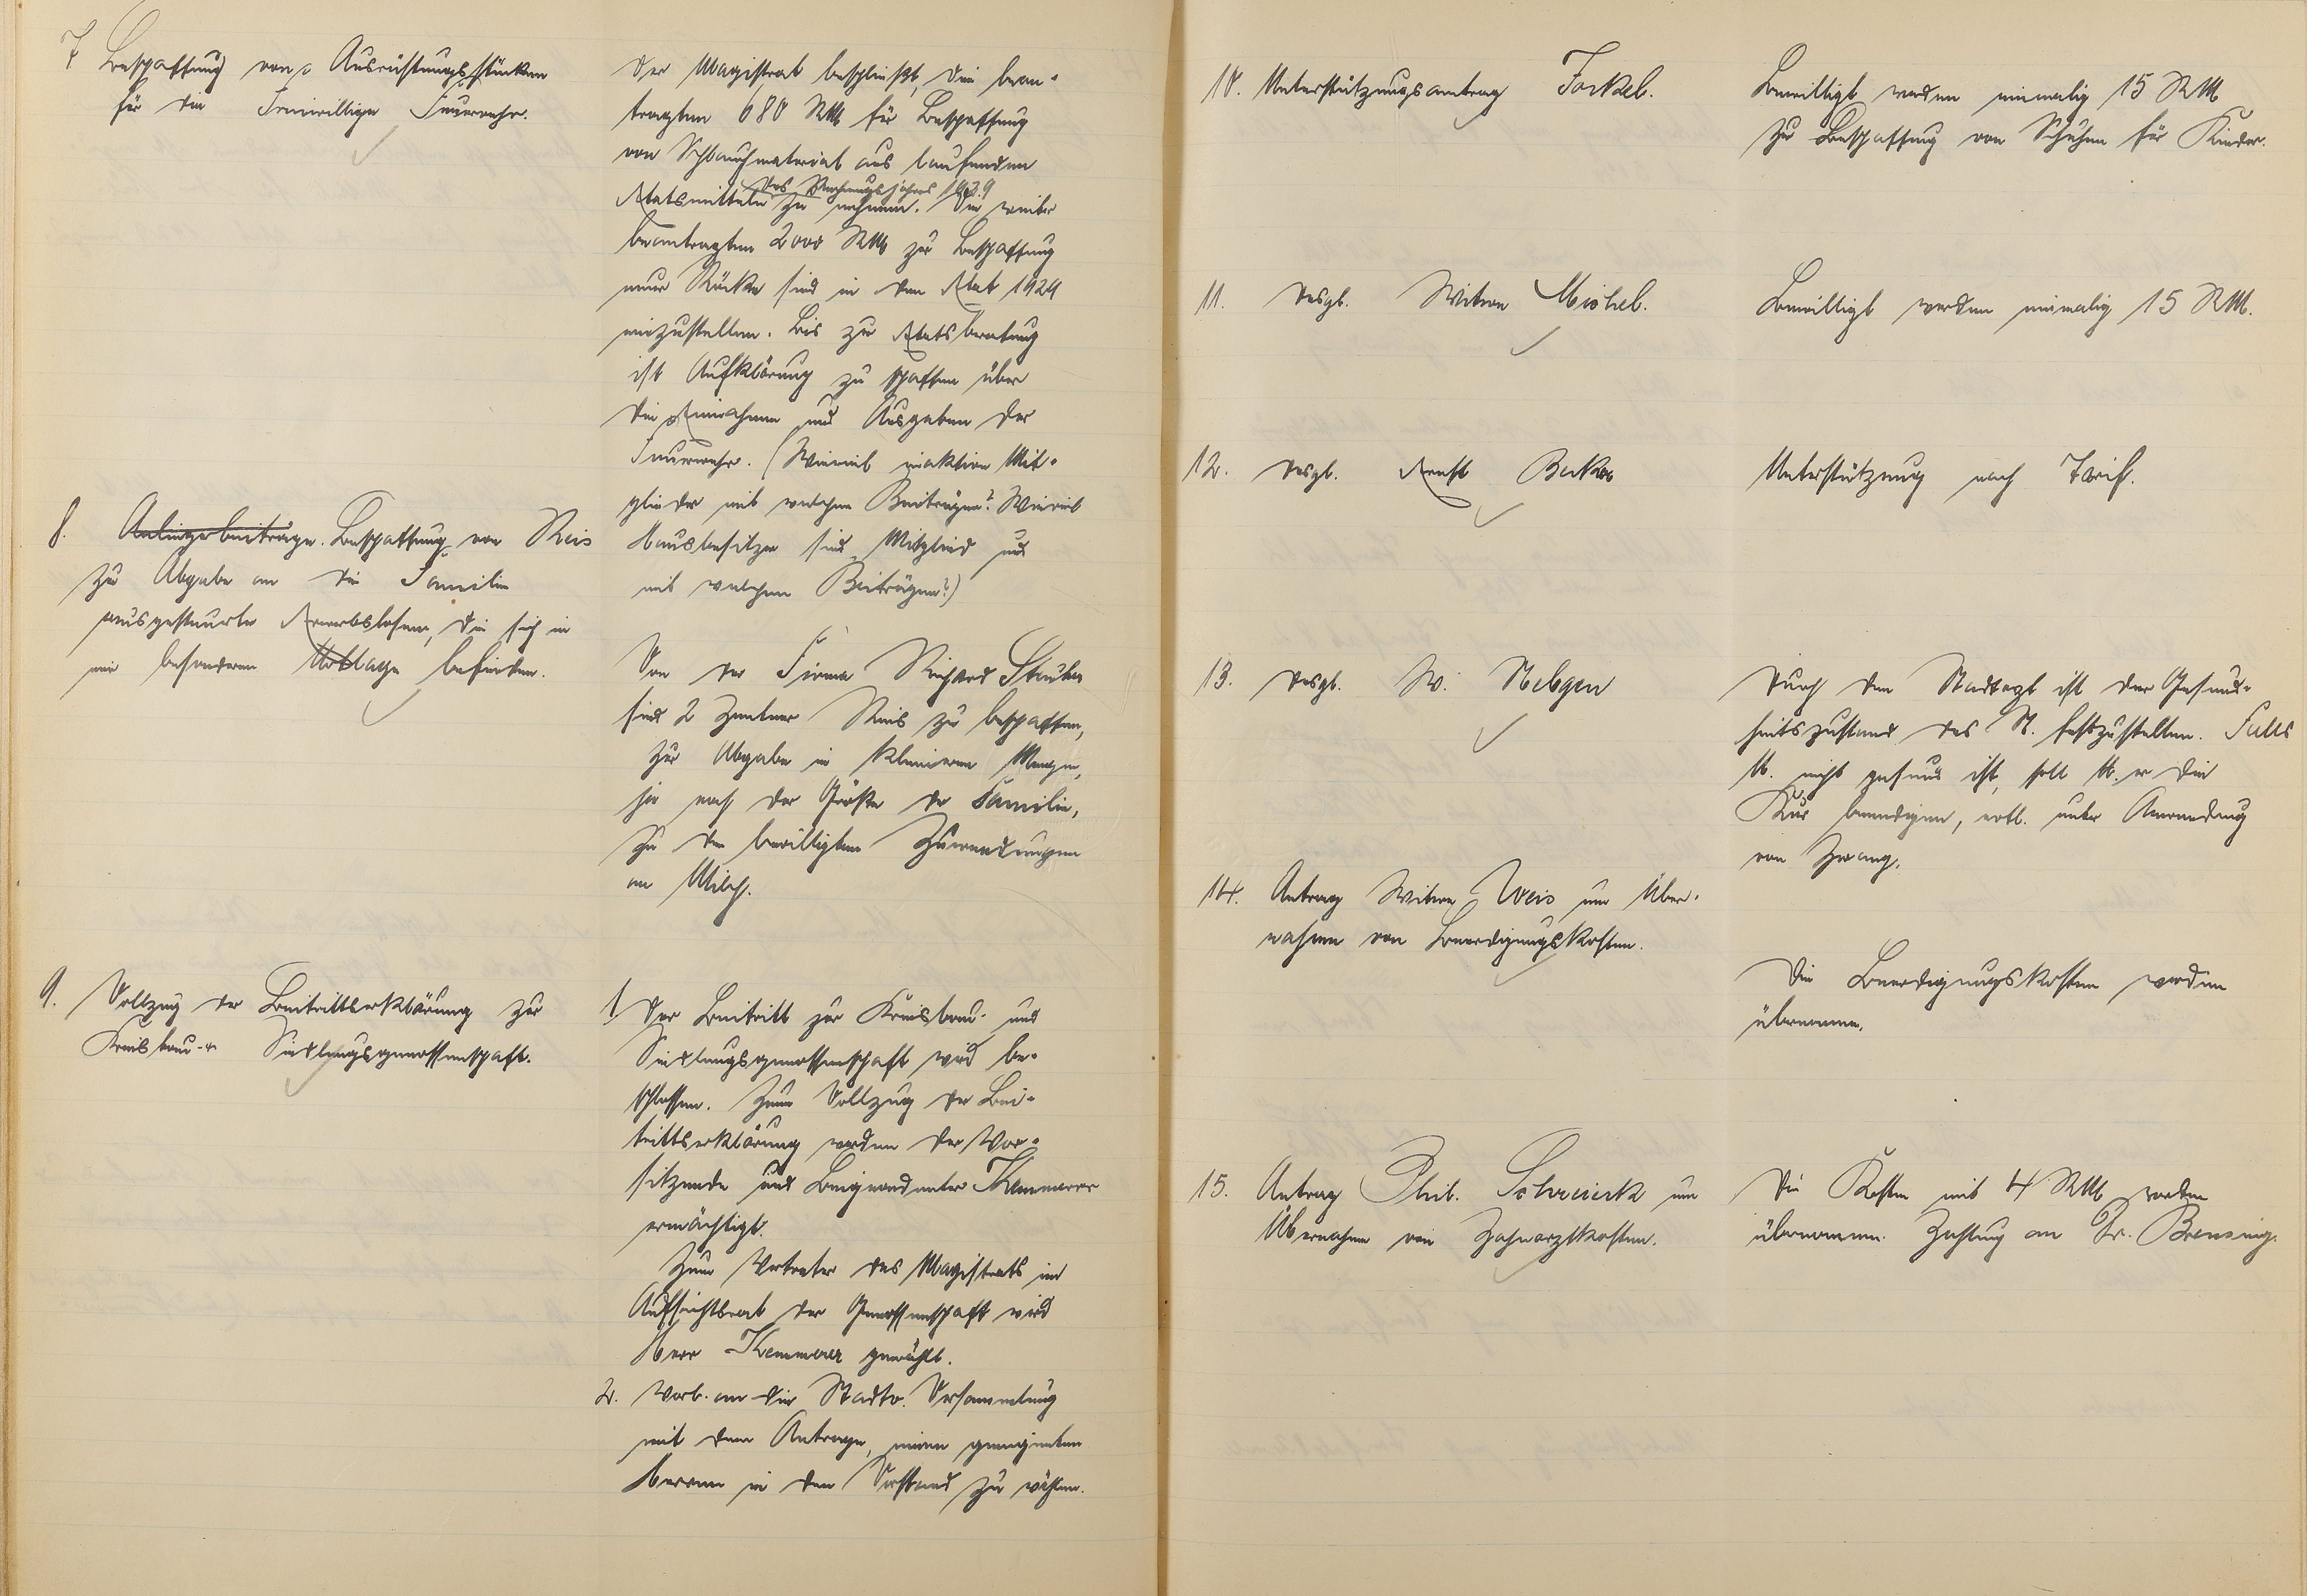 7 Beschaffung von Ausrüstungsstücken
für die Freiwillige Feuerwehr.
Der Magistrat beschließt, die bean-
tragten 680 RM für Beschaffung
von Schlauchmaterial aus laufenden
des Rechnungsjahres 1929
Etatsmitteln zu nehmen. Die weiter
beantragten 2000 RM zur Beschaffung
neuer Röcke sind in den Etat 1929
einzustellen. Bis zur Etatsberatung
ist Aufklärung zu schaffen über
die Einnahmen und Ausgaben der
Feuerwehr. (Wieviel inaktive Mit-
glieder mit welchen Beiträgen? Wieviel
Hausbesitzer sind Mitglied und
mit welchen Beiträgen?)
8. Anliegerbeiträge. Beschaffung von Reis
zur Abgabe an die Familien
ausgesteuerter Erwerbslosen, die sich in
einer besonderen Notlage befinden.
Von der Firma Richard
sind 2 Zentner Reis zu beschaffen,
zur Abgabe in kleineren Mengen,
je nach der Größe der Familie,
zu den bewilligten Zuwendungen
an Milch.
9. Vollzug der Beitrittserklärung zur
Kreisbau- u. Siedlungsgenossenschaft.
1. Der Beitritt zur Kreisbau- und
Siedlungsgenossenschaft wird be-
schlossen. Zum Vollzug der Bei-
trittserklärung werden der Vor-
sitzende und Beigeordneter Kemmerer
ermächtigt.
Zum Vertreter des Magistrats im
Aufsichtsrat der Genossenschaft wird
Herr Kemmerer gewählt.
2. Vorl. an die Stadtv. Versammlung
mit dem Antrage, einen geeigneten
Herren in den Vorstand zu wählen.
10. Unterstützungsantrag Forkel.
Bewilligt werden einmalig 15 RM
zur Beschaffung von Schuhen für Kinder.
11. desgl. Witwe Michel.
Bewilligt werden einmalig 15 RM.
12. desgl. Ernst Becker
Unterstützung nach Tarif.
13. desgl. W. Nebgen
Durch den Stadtarzt ist der Gesund-
heitszustand des N. festzustellen. Falls
N. nicht gesund ist, soll N. die
Kur beendigen, evtl. unter Anwendung
von Zwang.
14. Antrag Witwe Weis um Über-
nahme von Beerdigungskosten.
Die Beerdigungskosten werden
übernommen.
15. Antrag Phil. um
Übernahme von Zahnarztkosten.
Die Kosten mit 4 RM werden
übernommen. Zahlung an Dr. Brensing.